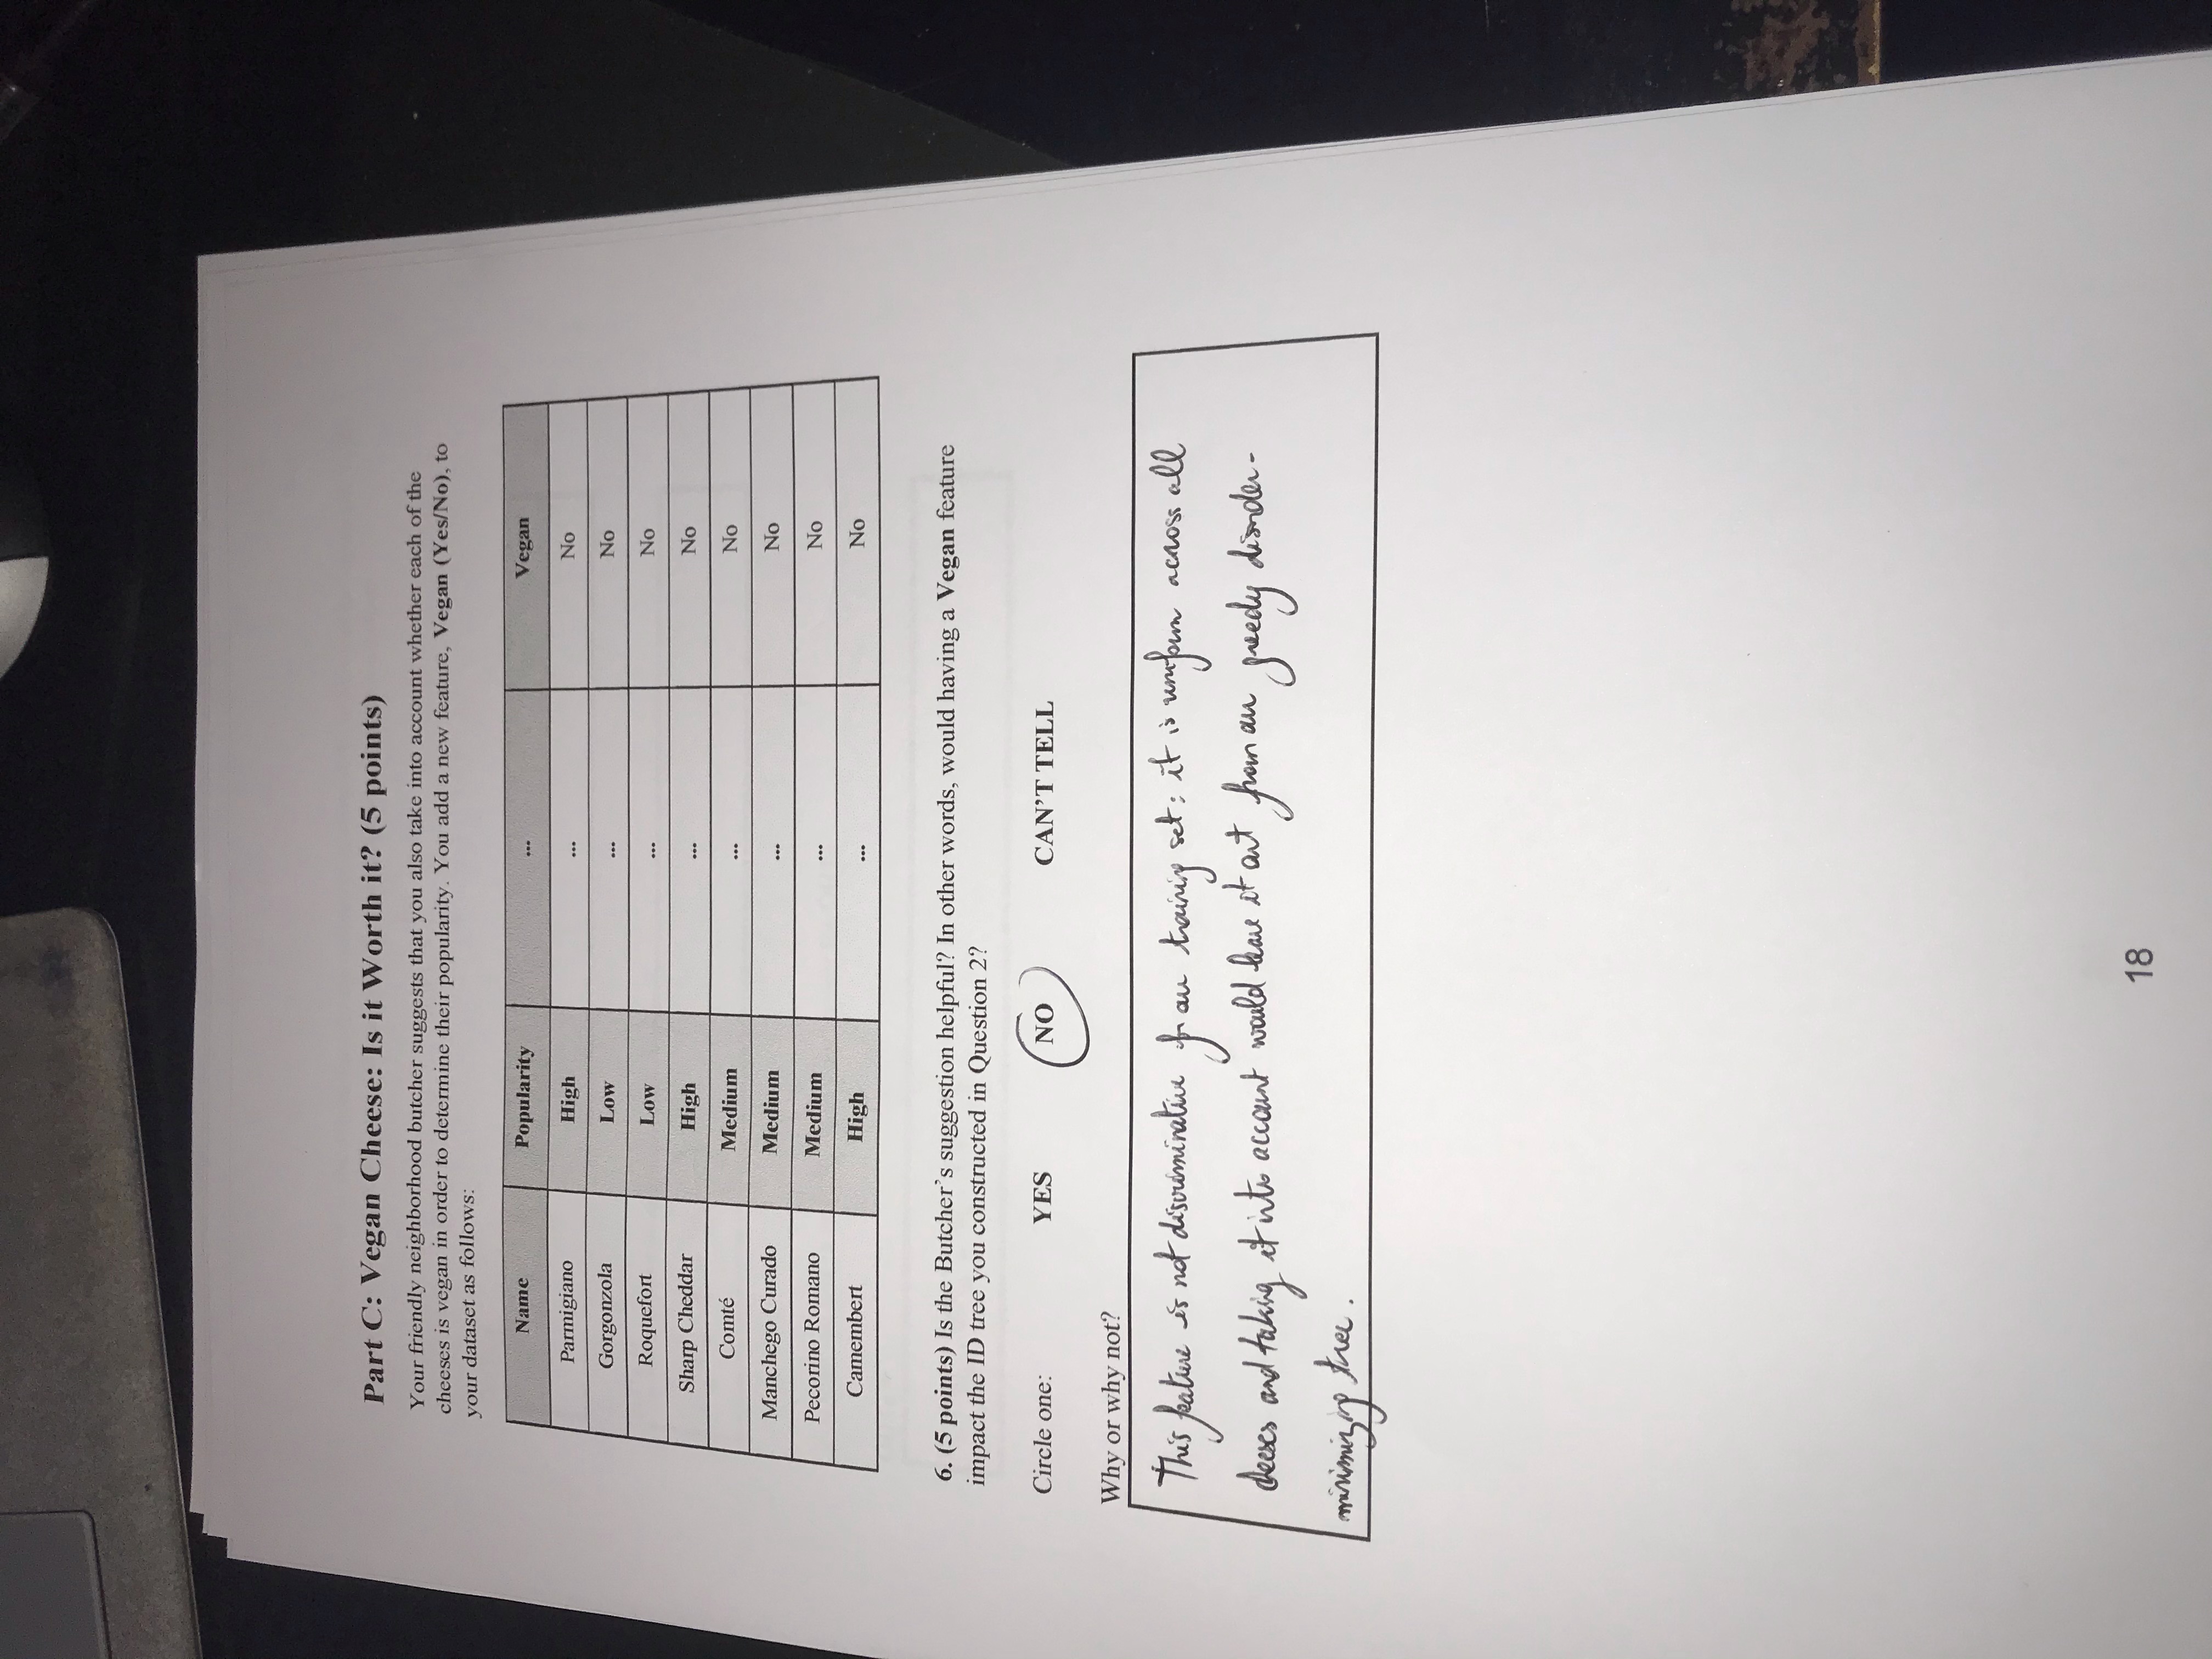 Part C: Vegan Cheese: Is it Worth it? (5 points)
Your friendly neighborhood butcher suggests that you also take into account whether each of the
cheeses is vegan in order to determine their popularity. You add a new feature, Vegan (Yes/No), to
your dataset as follows:
Name Popularity ... Vegan
Parmigiano High ... No
Gorgonzola Low ... No
Roquefort Low ... No
Sharp Cheddar High ... No
Comté Medium ... No
Manchego Curado Medium ... No
Pecorino Romano Medium ... No
Camembert High ... No
6. (5 points) Is the Butcher's suggestion helpful? In other words, would having a Vegan feature
impact the ID tree you constructed in Question 2?
Circle one: YES NO CAN'T TELL
Why or why not?
This feature is not discriminative for our training set: it is uniform across all
cheeses and taking it into account would leave it out from our greedy disorder-
minimizing tree.
18